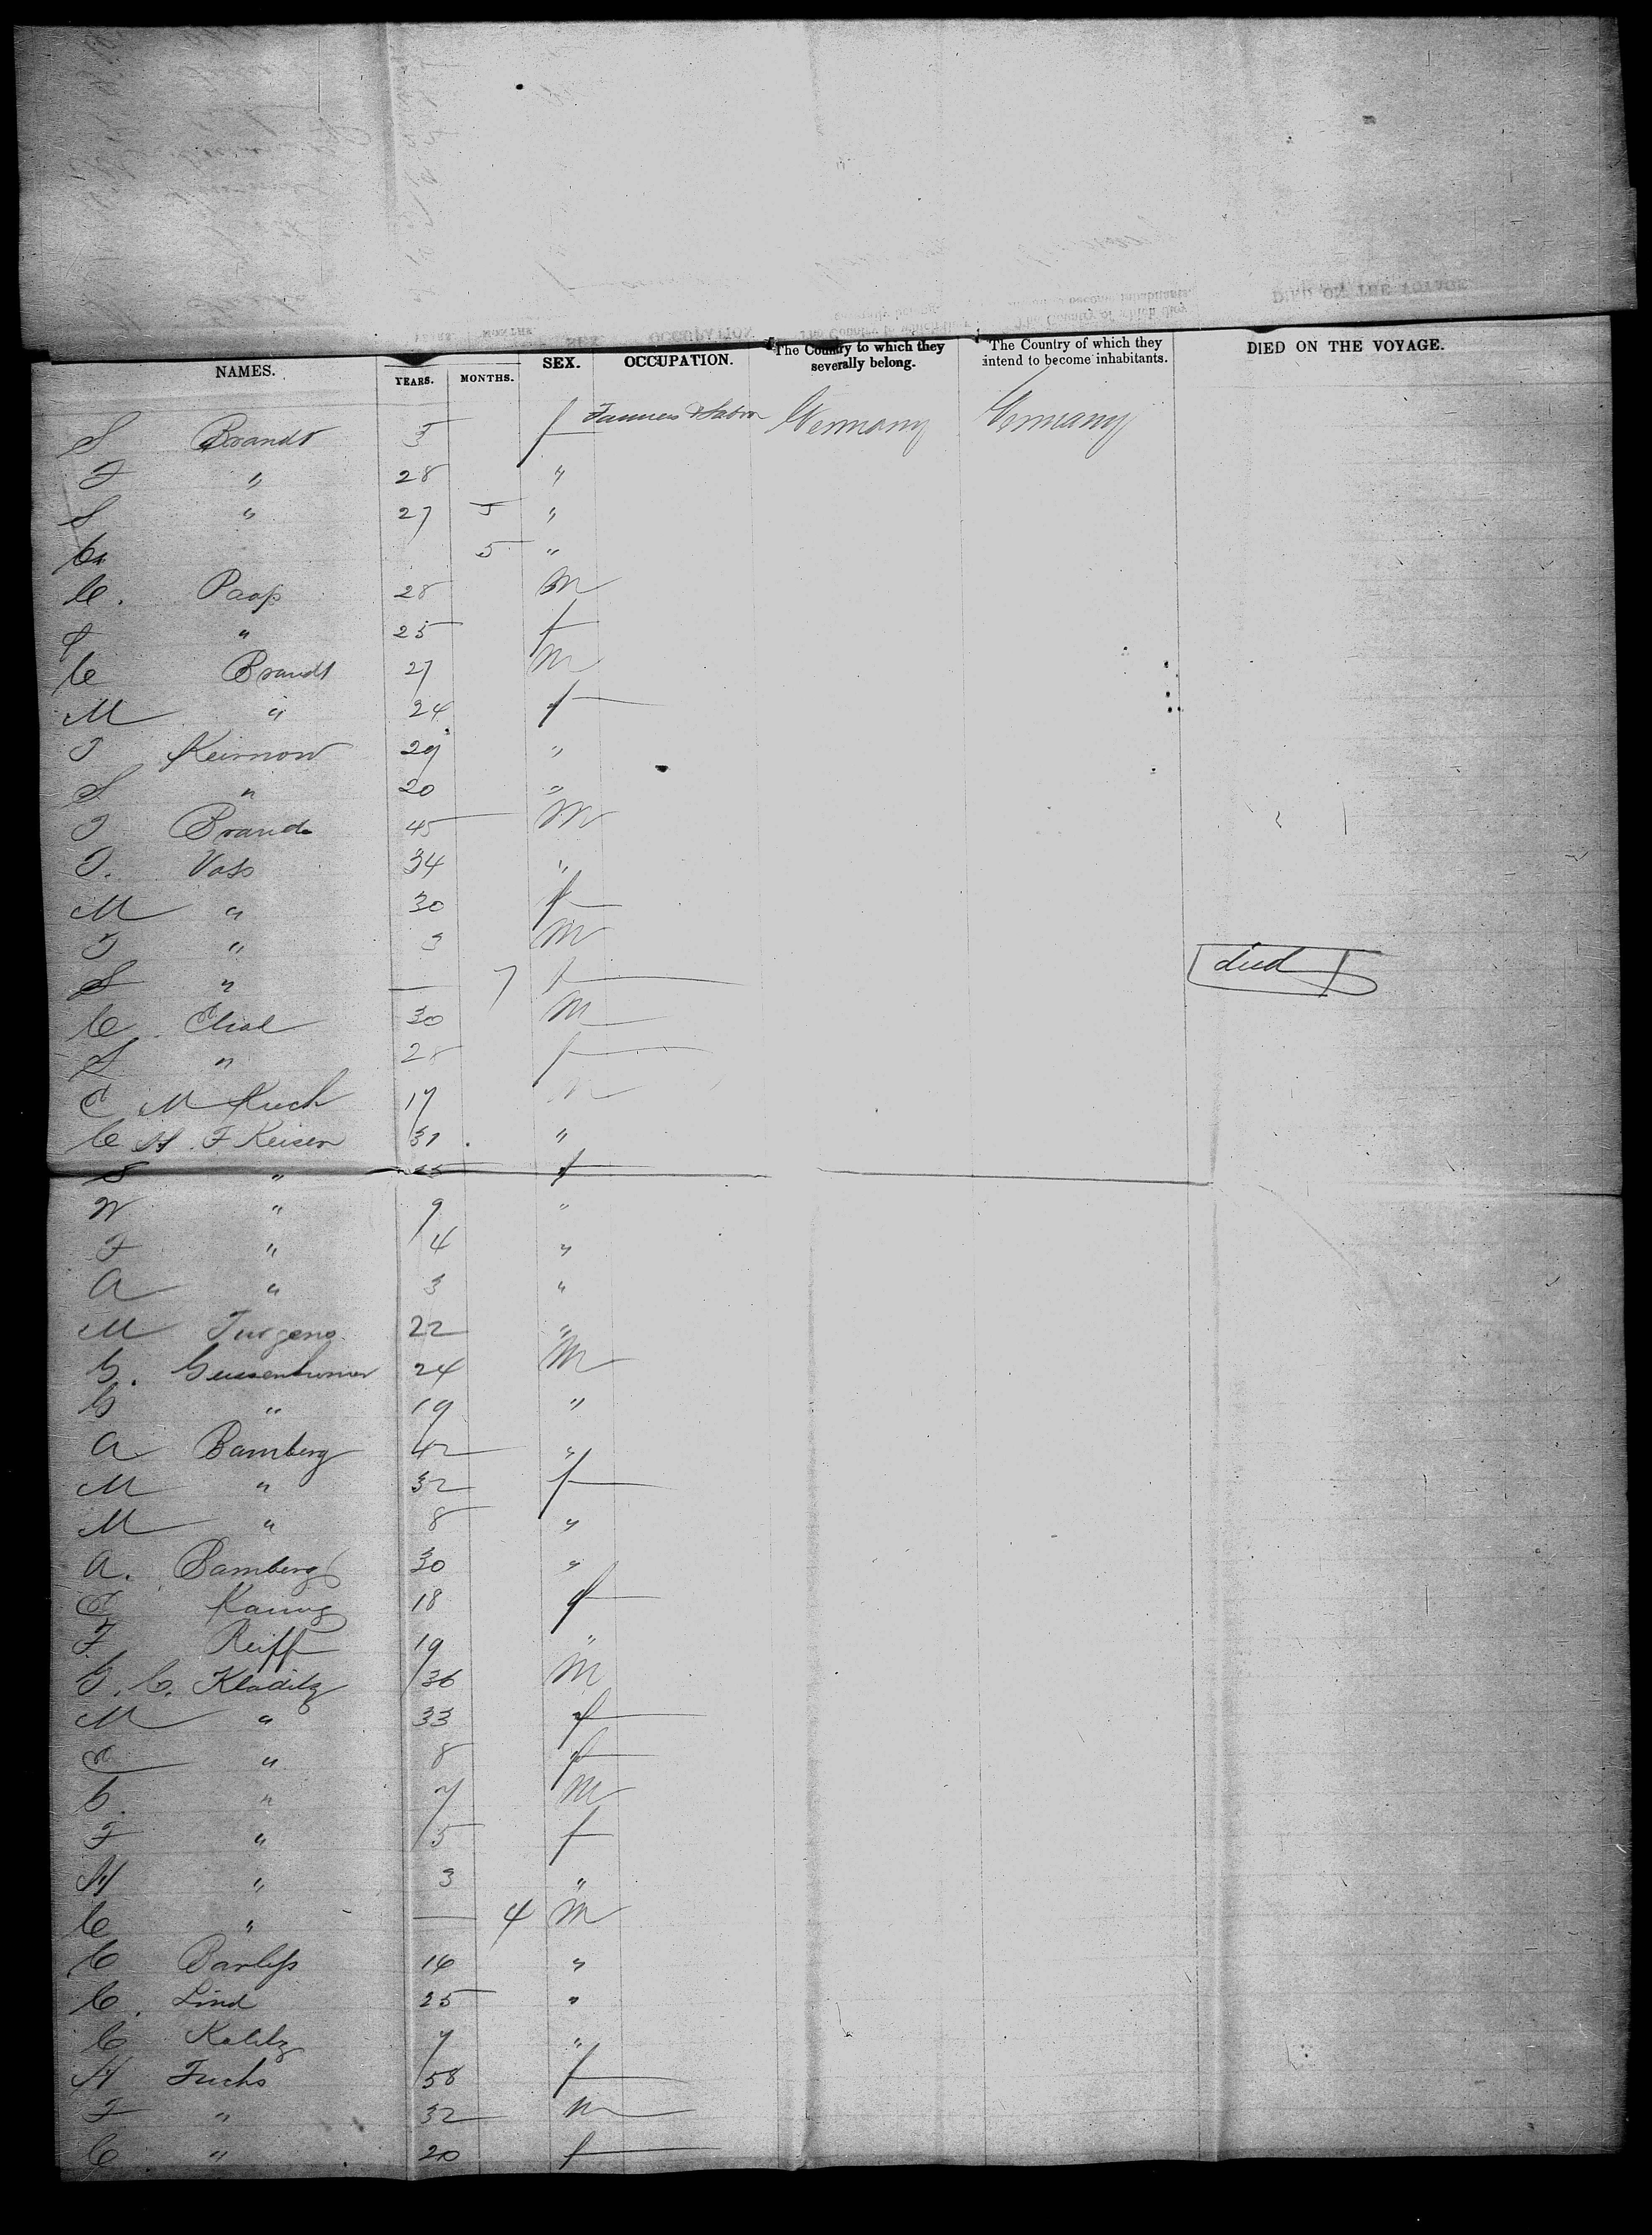 NAMES. YEARS. MONTHS. SEX. OCCUPATION. The Country to which they severally belong. The Country of which they intend to become inhabitants. DIED ON THE VOYAGE.
S Brandt 5 f Germany Germany
F " 28 "
S " 27 5 "
5 "
C. Paap 28 m
" 25 f
C Brandt 27 m
M " 24 f
J 29 "
S " 20 "
J Brand 45 m
J. Vass 34 "
M " 30 f
J " 3 m
S " — 7 f died
C 30 m
S " 28 f
M 17 m
C H F Keiser 31 "
S " 25 f
W " 9 "
F " 4 "
A " 3 "
M Jurgens 22 "
G. 24 m
G " 19 "
A Bamberg 42 "
M " 32 f
M " 8 "
A. Bamberg 30 "
18 f
F Reiff 19 "
G. C. Kladitz 36 m
M " 33 f
" 8 f
" 7 m
F " 5 f
H " 3 "
C " — 4 m
C 16 "
C. Lind 25 "
C 7 "
H Fuchs 58 f
F " 32 m
C " 20 f